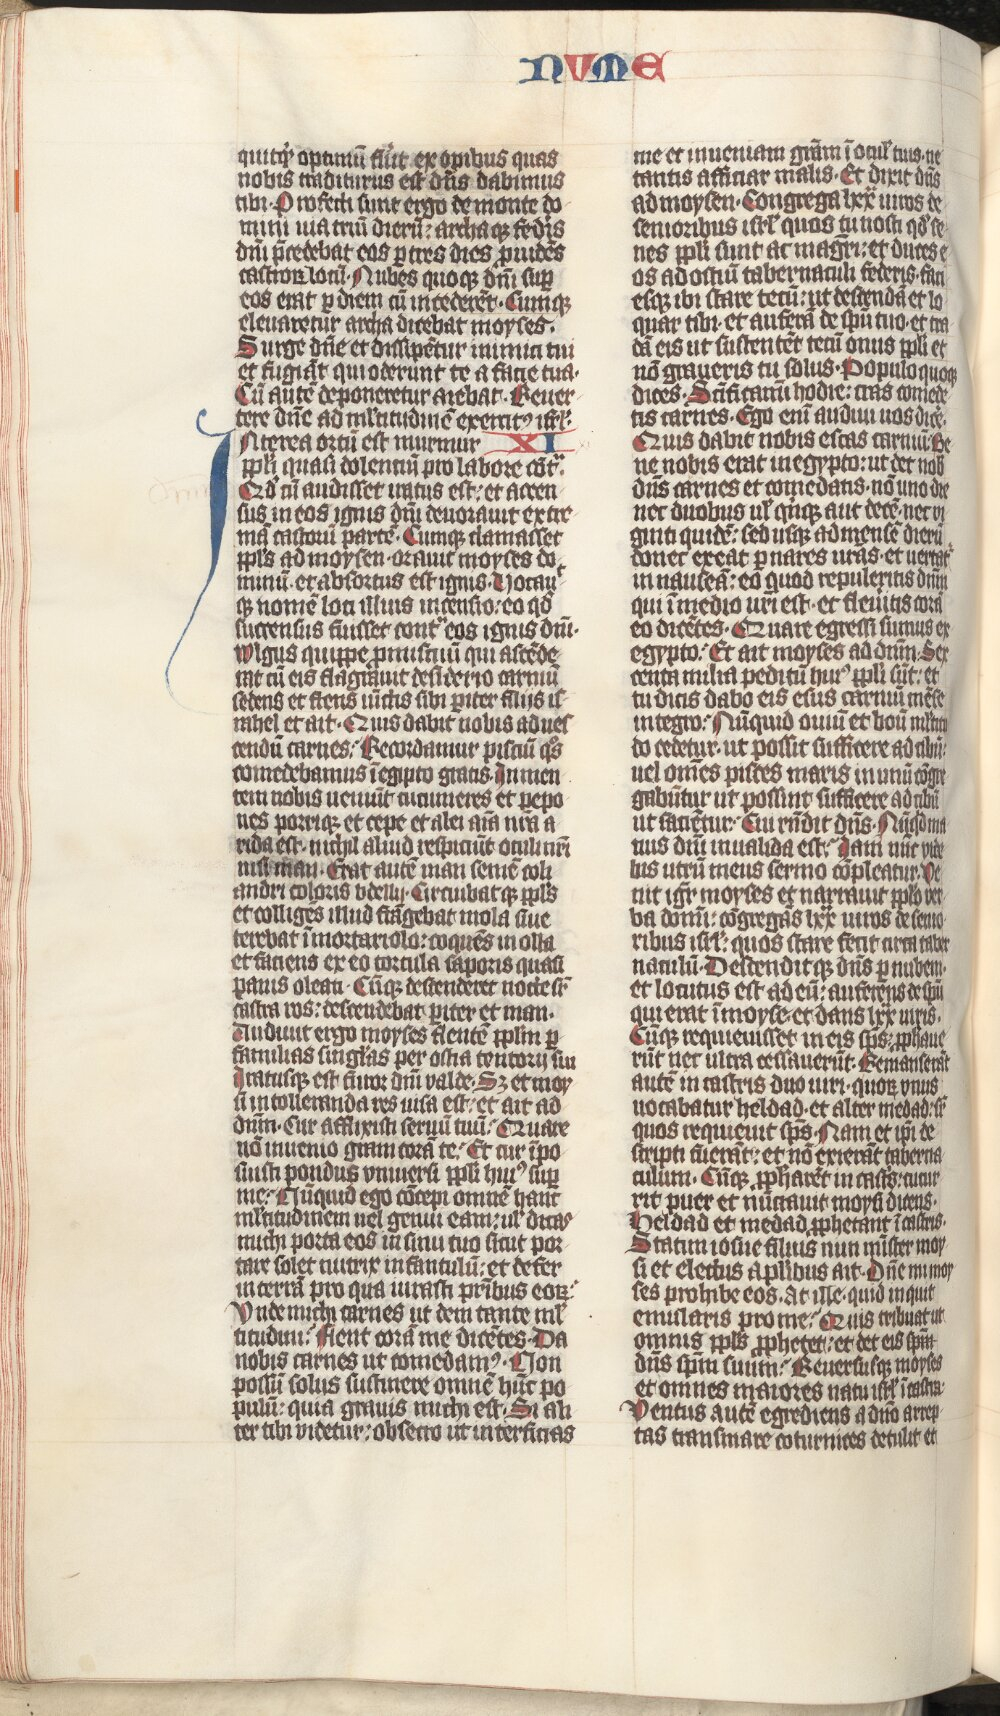 NVME
quitq̇ optimū fu̅it ex opibus quas
nobis traditurus est dn̄s dabimus
tibi. Profecti sunt ergo de monte do
mini uia triū dierū: archa qƺ fedīs
dn̄i p̄cedebat eos ꝑ tres dies ꝓuidēs
castroꝝ locū. Nubes quoqƺ dn̄i suꝑ
eos erat ꝑ diem cū incederēt. Cumqƺ
eleuaretur archa dicebat moyses.
Surge dn̄e et dissipēt̄ur inimici tui
et fugiāt qui oderunt te a facie tua.
Cū autē deponeretur aiebat. Reuer
tere dn̄e ad ml̄titudinē exercitꝰ isrl̄.
Nterea ortū est murmur XI
ꝓpl̄i quasi dolentiū pro labore cōt̄.
Qd̄ cū audisset iratus est: et accen
sus in eos ignis dn̄i deuorauit extre
mā castrorū partē. Cumqƺ clamasset
ꝓpl̄s ad moysen. orauit moyses do
minū. et absortus est ignis. Vocauit
qƺ nomē loci illius incensio: eo qd̄
succensus fuisset cont̄ eos ignis dn̄i.
Wlgus quippe ꝓmiscuū qui ascēde
rat cū eis flagrauit desiderio carniū
sedens et flens iūctis sibi ꝑiter filijs is
rahel et ait. Quis dabit nobis ad ues
cendū carnes: Recordamur pisciū q̄s
comedebamus ī egipto gratis. In men
tem nobis ueniūt cucumeres et pepo
nes porriqƺ et cepe et alei aīa nr̄a a
rida est. nichil aliud respiciūt oculi nr̄i
nisi man. Erat autē man semē coli
andri coloris bdellij. Circuibat qƺ ꝓpl̄s
et colligēs illud frāgebat mola siue
terebat ī mortariolo: coquēs in olla
et faciens ex eo tortula saporis quasi
panis oleati. Cūqƺ descenderet nocte sr̄
castra ros: descendebat ꝑiter et man.
Audiuit ergo moyses flentē ꝓpl̄m ꝑ
familias singl̄as per ostia tentorij sui
Iratusqƺ est furor dn̄i valde. Sƺ et moy
si intolleranda res uisa est: et ait ad
dn̄m. Cur afflixisti seruū tuū: Quare
nō inuenio grām corā te: Et cur īpo
suisti pondus vniuersi ꝓpl̄i huiꝰ suꝑ
me: Nūquid ego cōcepi omnē hanc
ml̄titudinem uel genui eam: ul̄ dicas
michi porta eos in sinu tuo sicut por
tare solet nutrix infantulū: et defer
in terrā pro qua iurasti pr̄ibus eoꝝ:
Vnde michi carnes ut dem tante ml̄
titudini: Flent corā me dicētes. Da
nobis carnes ut comedamꝰ. Non
possū solus sustinere omnē hūc po
pulū: quia grauis michi est. Si ali
ter tibi videtur: obsecro ut interficias
me et inueniam grām ī ocul̄ tuis. ne
tantis afficiar malis. Et dixit dn̄s
ad moysen. Congrega lxx uiros de
senioribus isrl̄ quos tu nosti qd̄ se
nes ꝓpl̄i sunt ac magr̄i: et duces e
os ad ostiū tabernaculi federis. faci
esqƺ ibi stare tecū: ut descendā et lo
quar tibi. et auferā de sp̄u tuo. et tra
dā eis ut sustentēt tecū onus ꝓpl̄i et
nō graueris tu solus. Populo quoqƺ
dices. Sc̄ificamī hodie: cras comede
tis carnes. Ego enī audiui uos dicē.
Quis dabit nobis escas carniū: Be
ne nobis erat in egypto: ut det nob̄
dn̄s carnes et comedatis. nō uno die
nec duobus ul̄ q̄nqƺ aut decē. nec vi
ginti quidē: sed usqƺ ad mensē dierū
donec exeat ꝑ nares ur̄as. et uertat̄
in nauseā: eo quod repuleritis dn̄m
qui ī medio ur̄i est. et fleuitis corā
eo dicētes. Quare egressi sumus ex
egypto: Et ait moyses ad dn̄m. Sex
centa milia peditū huiꝰ ꝓpl̄i sūt: et
tu dicis dabo eis esus carniū mēse
integro: Nūquid ouiū et boū ml̄titu
do cedetur. ut possit sufficere ad cibū:
uel omēs pisces maris in unū cōgre
gabūtur ut possint sufficere ad cibū
ut sacientur: Cui rn̄dit dn̄s. Nūqd ma
nus dn̄i inualida est: Iam nūc vide
bis utrū meus sermo cōpleatur. Ve
nit igr̄ moyses et narrauit ꝓpl̄o ver
ba domī: cōgregās lxx uiros de senio
ribus isrl̄: quos stare fecit circa taber
naculū. Descenditqƺ dn̄s ꝑ nubem.
et locutus est ad eū: auferens de sp̄u
qui erat ī moyse et dans lxx uiris.
Cūqƺ requieuisset in eis sp̄s: ꝓphaue
rūt nec ultra cessauerūt. Remanserāt
autē in castris duo uiri. quoꝝ vnus
uocabatur heldad. et alter medad: sr̄
quos requieuit sp̄s. Nam et ip̄i de
scripti fuerāt: et nō exierāt taberna
culum. Cūqƺ ꝓpharēt in cast̄s: cucur
rit puer et nūciauit moysi dicens.
Heldad et medad ꝓphetant ī castris.
Statim iosue filius nun mīster moy
si et electus a plībus ait. Dn̄e mi moy
ses prohibe eos. At ille. quid inquit
emularis pro me: Quis tribuat ut
omnis ꝓpl̄s ꝓphetet: et det eis sp̄m
dn̄s sp̄m suum: Reuersusqƺ moyses
et omnes maiores natu isrl̄ ī castra.
Ventus autē egrediens a dn̄o arrep
tas transmare coturnices detulit et